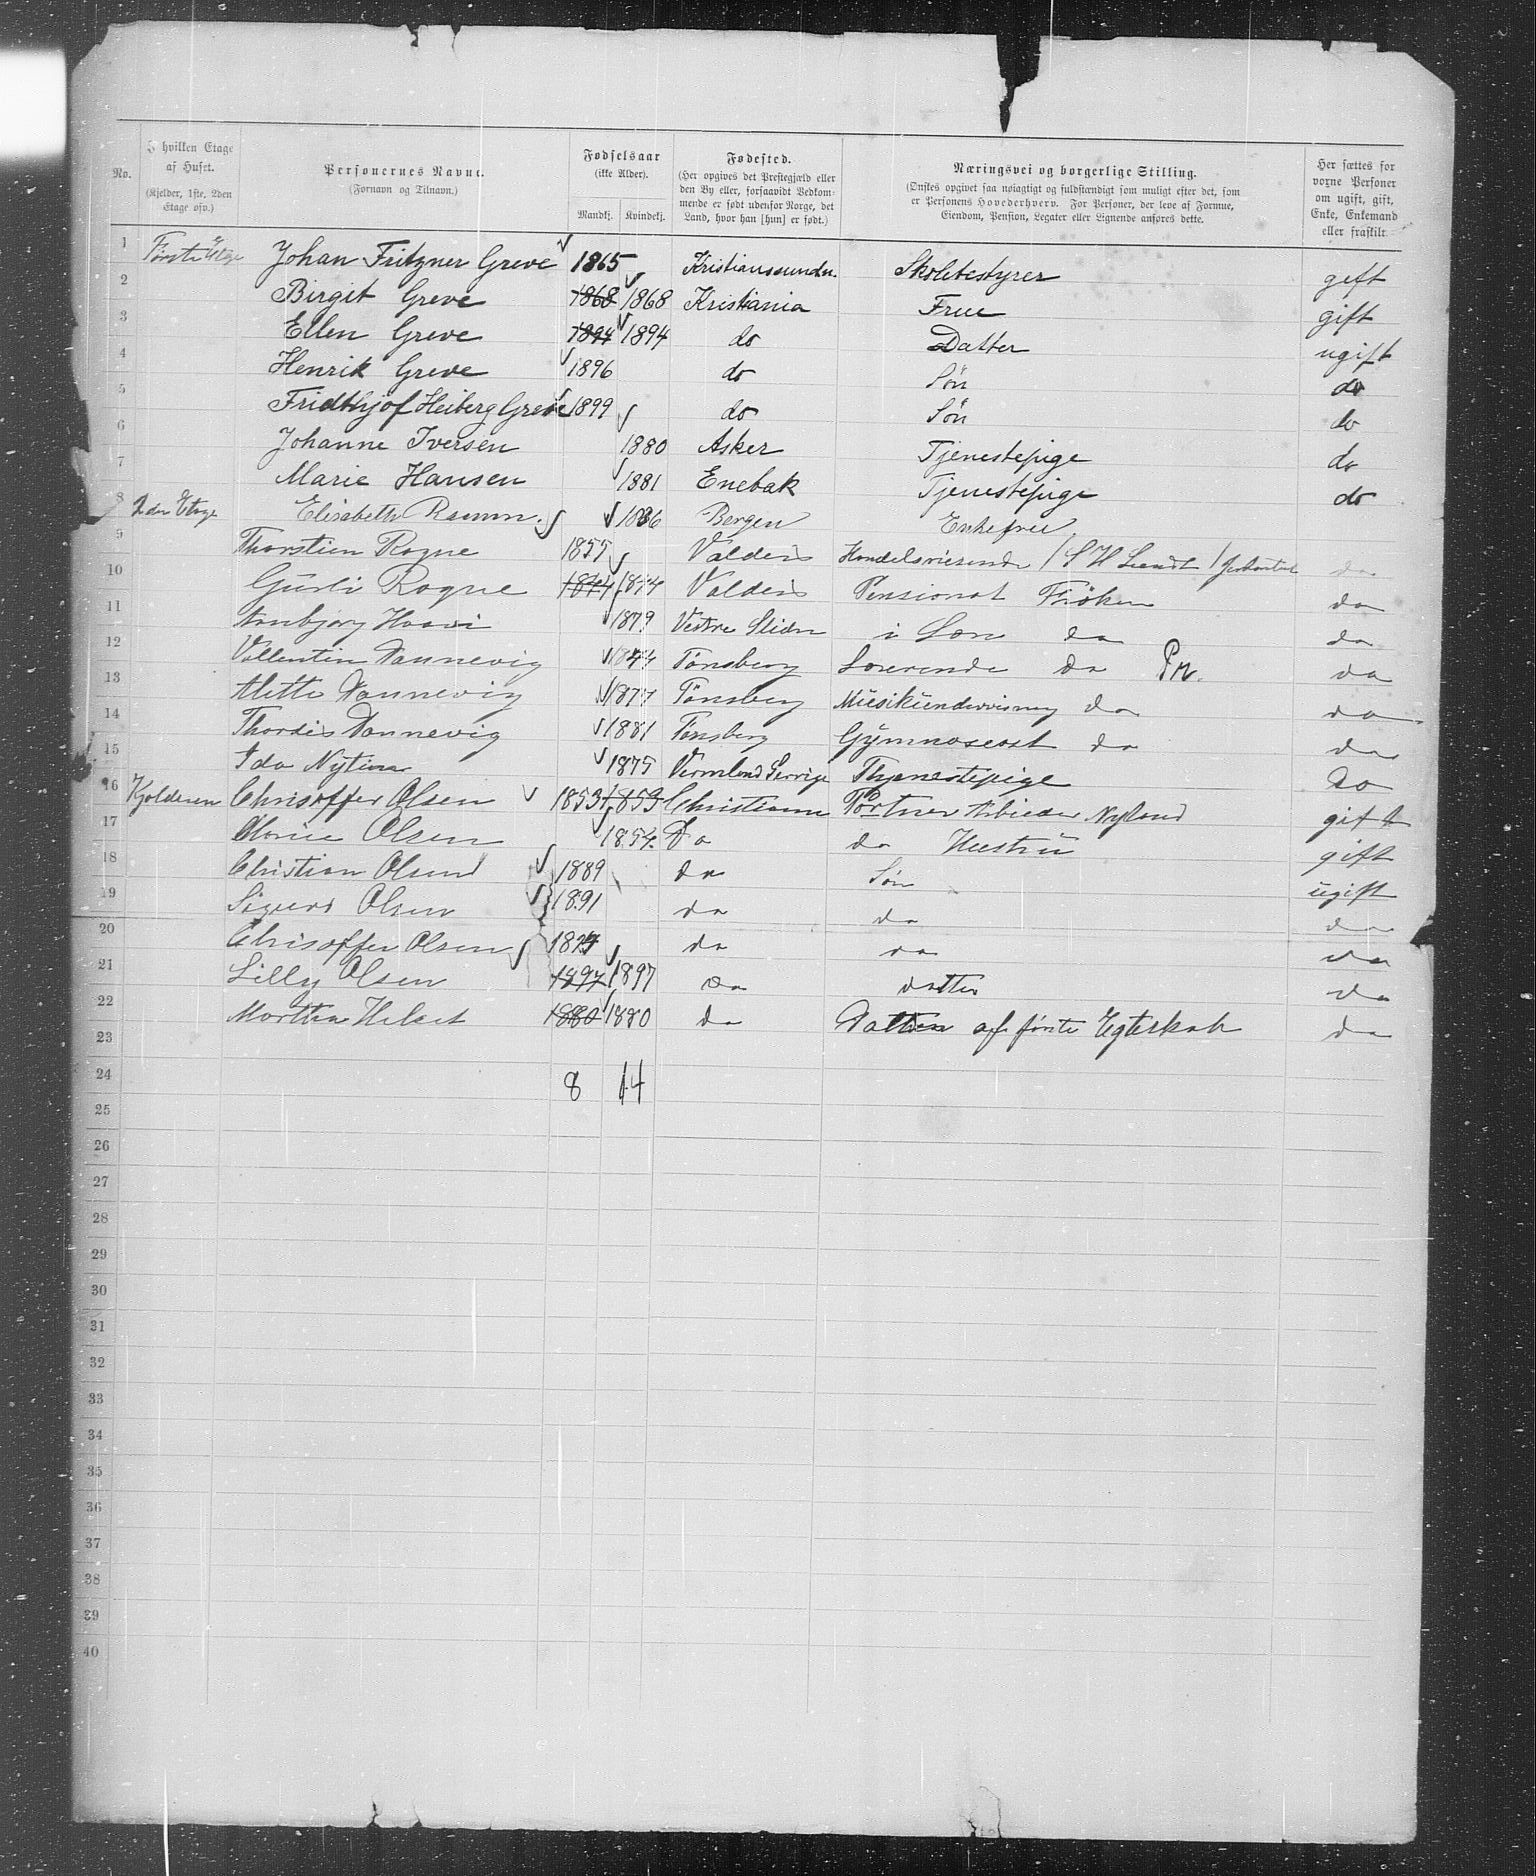 No.
I hvilken Etage af Huset.
(Kjelder, 1ste, 2den Etage osv.)
Personernes Navne.
(Fornavn og Tilnavn.)
Fødselsaar
(ikke Alder).
Mandkj. Kvindekj.
Fødested.
(Her opgives det Prestegjæld eller den By eller, forsaavidt Vedkommende er født udenfor Norge, det Land, hvor han [hun] er født.)
Næringsvei og borgerlige Stilling.
(Ønskes opgivet saa nøiagtigt og fuldstændigt som muligt efter det, som er Personens Hovederhverv. For Personer, der leve af Formue, Eiendom, Pension, Legater eller Lignende anføres dette.
Her sættes for voxne Personer om ugift, gift, Enke, Enkemand eller fraskilt.
1 Første Etage Johan Fritzner Greve 1865 Kristianssund n. Skolebestyrer gift
2 Birgit Greve 1868 1868 Kristiania Frue gift
3 Ellen Greve 1894 1894 do Datter ugift
4 Henrik Greve 1896 do Søn do
5 Fridthjof Heiberg Greve 1899 do Søn do
6 Johanne Iversen 1880 Asker Tjenestepige do
7 Marie Hansen 1881 Enebak Tjenestepige do
8 2den Etage Elisabeth Ramm 1836 Bergen Enkefrue
9 Thorstien Rogne 1855 Valders Handelsreisende do
10 Gurli Rogne 1874 1874 Valders Pensionat Frøken do
11 1879 Vestre Slidre do do
12 Vallentin Wannevig 1844 Tønsberg Logerende do Pn. do
13 Mette Wannevig 1877 Tønsberg Musikundervisning do do
14 Thordis Wannevig 1881 Tønsberg Gymnaseast do do
15 Ida 1875 Vermland Sverrige Thjenestepige do
16 Kjelderen Chrisoffer Olsen 1853 1853 Christiania Portner Arbieder Nyland gift
17 Olsen 1854 Do do Hustru gift
18 Christian Olsen 1889 do Søn ugift
19 Sigurd Olsen 1891 do do do
20 Chrisoffer Olsen do do do
21 Lilly Olsen 1897 1897 do datter do
22 Martha 1880 1880 do Datter af første Egteskab do
23
24 8 14
25
26
27
28
29
30
31
32
33
34
35
36
37
38
39
40